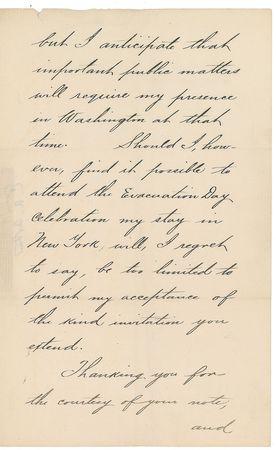 but I anticipate that
important public matters
will require my presence
in Washington at that
time. Should I, how-
ever, find it possible to
attend the Evacuation Day
Celebration my stay in
New York, will, I regret
to say, be too limited to
permit my acceptance of
the kind invitation you
extend.
Thanking you for
the courtesy of your note,
and